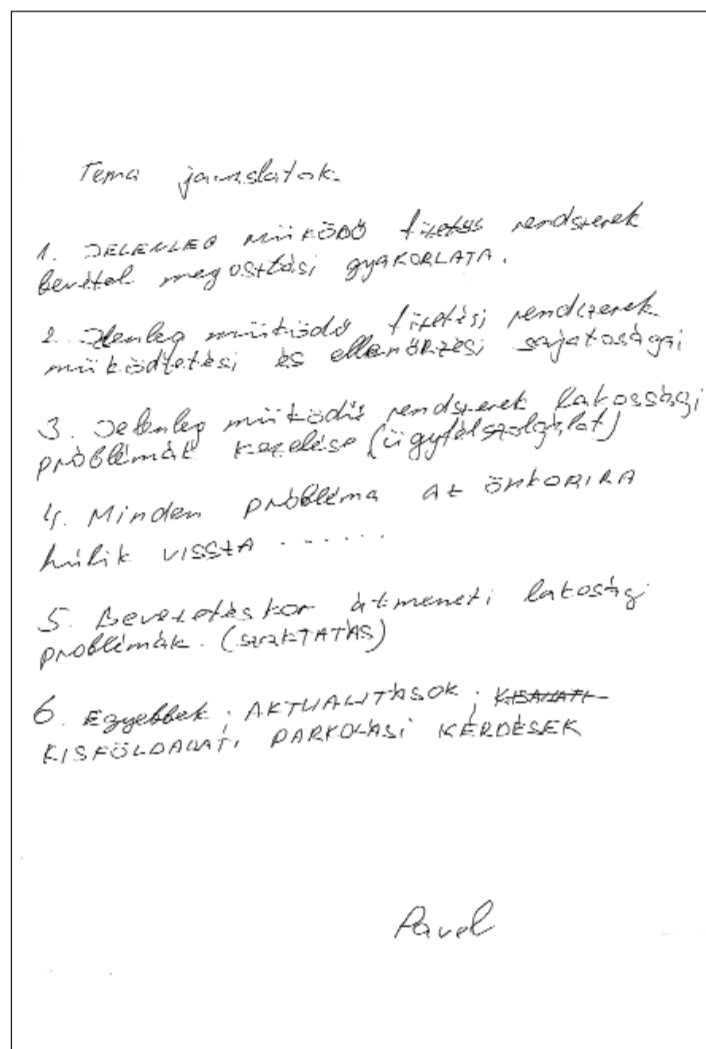 Tema javaslatok
1. JELENLEG MŰKÖDŐ fizetés rendszerek
bevétel megosztási gyakorlata.
2. Jelenleg működő fizetési rendszerek
működtetési és ellenőrzési sajatosságai
3. Jelenleg működő rendszerek lakossági
problémák kezelése (ügyfélszolgálat)
4. Minden probléma az önkorira
hullik VISSZA ......
5. Bevezetéskor átmeneti lakosági
problémák. (SZOKTATÁS)
6. Egyebbek; AKTUALITÁSOK;
KISFÖLDALATI PARKOLÁSI KÉRDÉSEK
Pavel